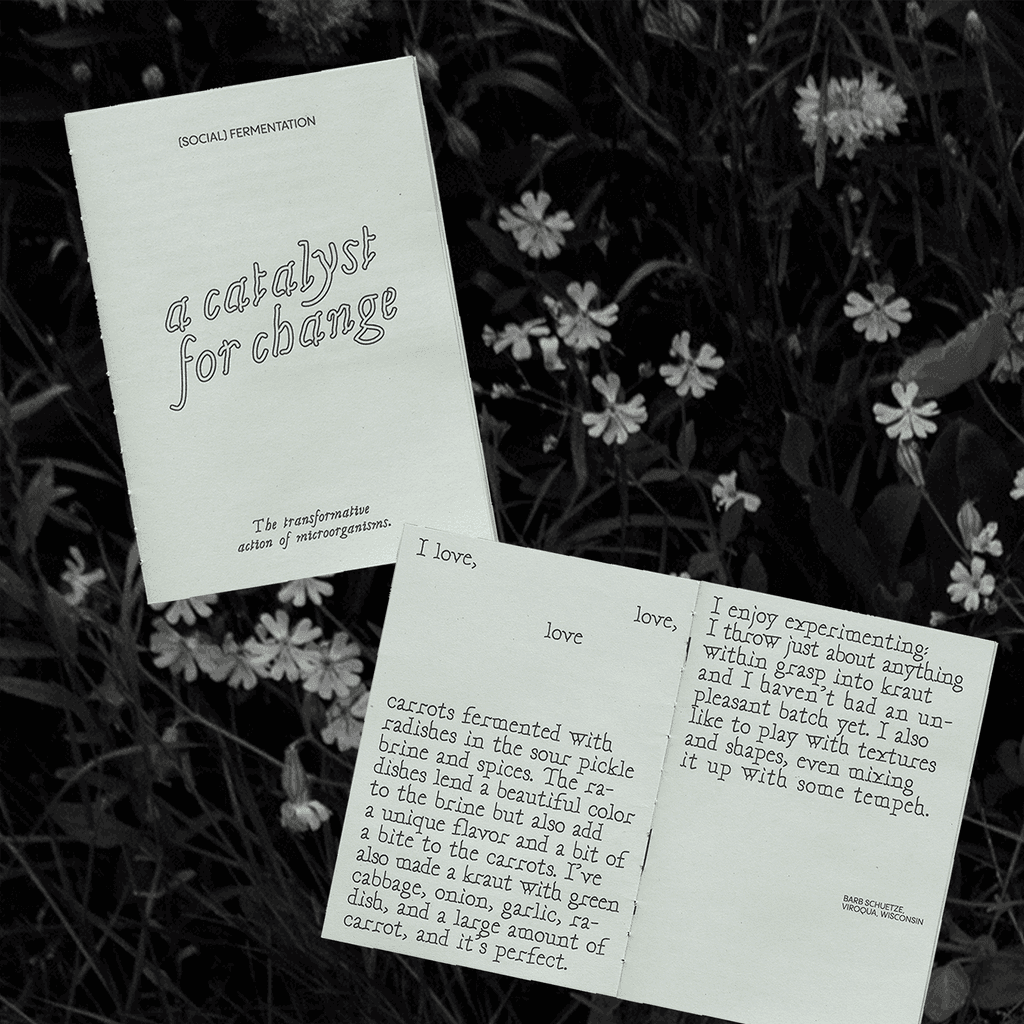 (SOCIAL) FERMENTATION
a catalyst
for change
The transformative
action of microorganisms.
I love,
love,
love
carrots fermented with
radishes in the sour pickle
brine and spices. The ra-
dishes lend a beautiful color
to the brine but also add
a unique flavor and a bit of
a bite to the carrots. I've
also made a kraut with green
cabbage, onion, garlic, ra-
dish, and a large amount of
carrot, and it's perfect.
I enjoy experimenting;
I throw just about anything
within grasp into kraut
and I haven't had an un-
pleasant batch yet. I also
like to play with textures
and shapes, even mixing
it up with some tempeh.
BARB SCHUETZE,
VIROQUA, WISCONSIN